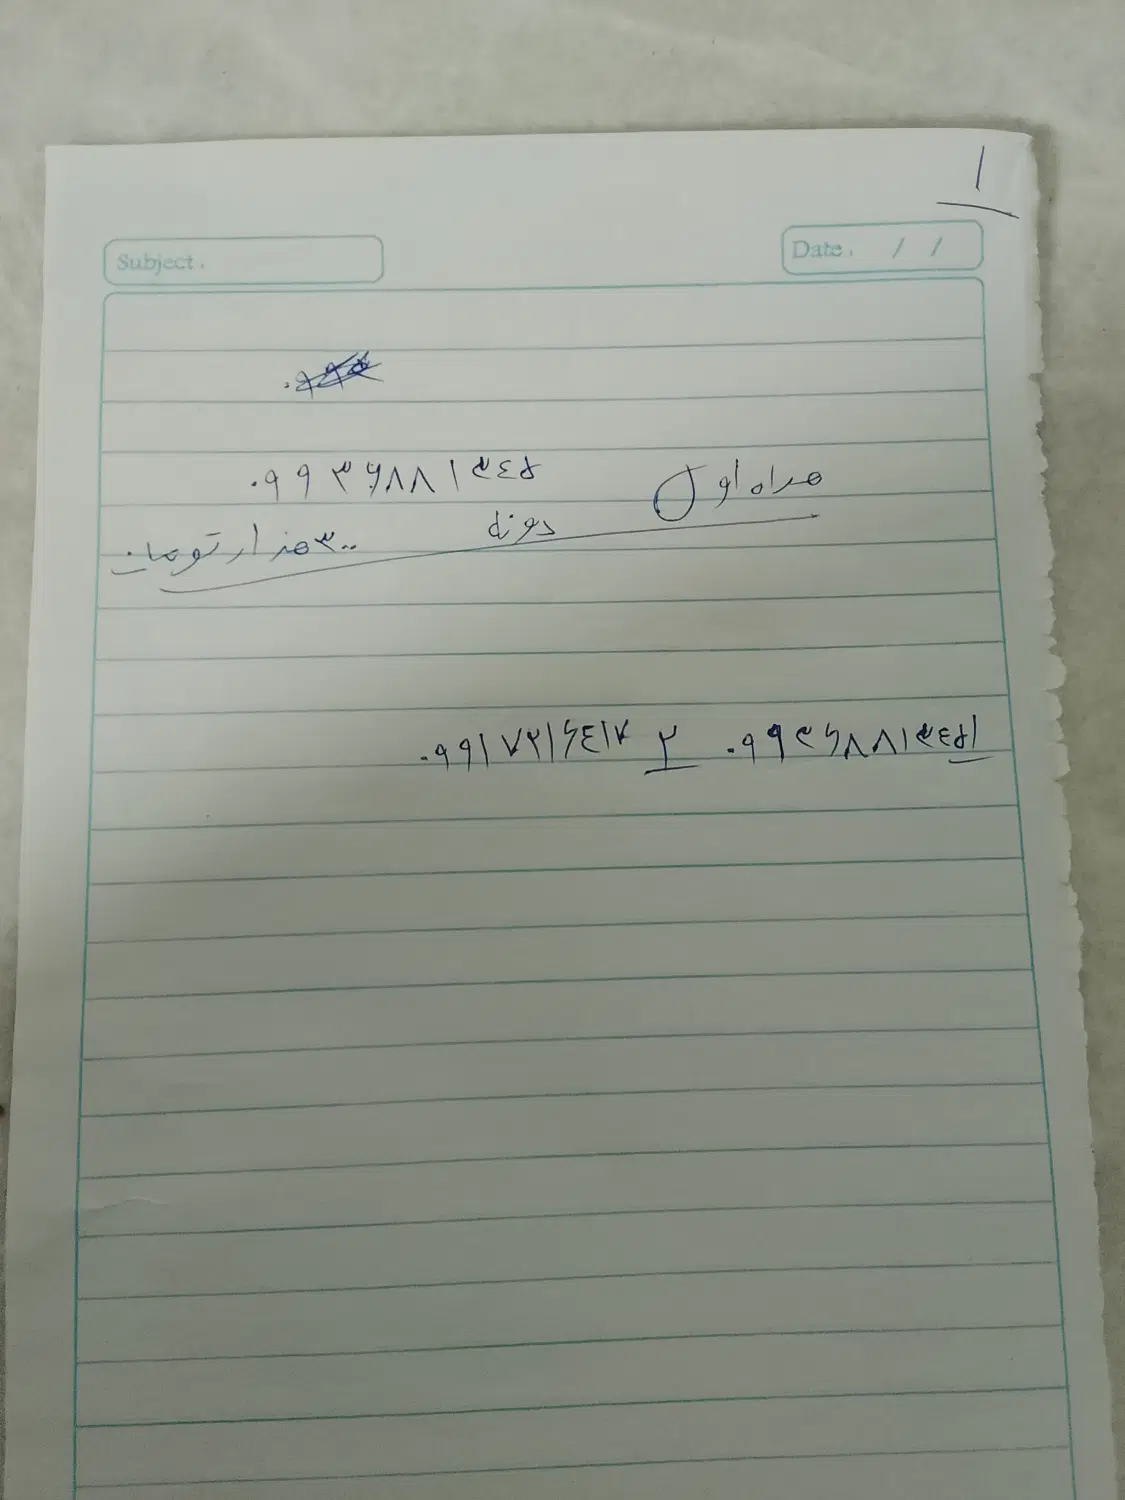 ۱
Subject : Date : / /
همراه اول ۰۹۹۳۶۸۸۱۳۴۵
دونه ۳۰۰ هزار تومان
۰۹۹۳۶۸۸۱۳۴۵ ۲ ۰۹۹۱۷۲۱۶۴۱۷